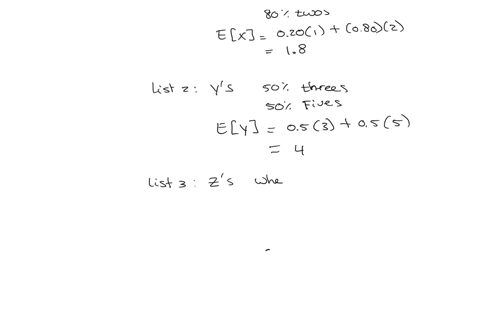 80% twos
E[X] = 0.20(1) + (0.80)(2)
= 1.8
List 2: Y's 50% threes
50% Fives
E[Y] = 0.5(3) + 0.5(5)
= 4
List 3: Z's whe